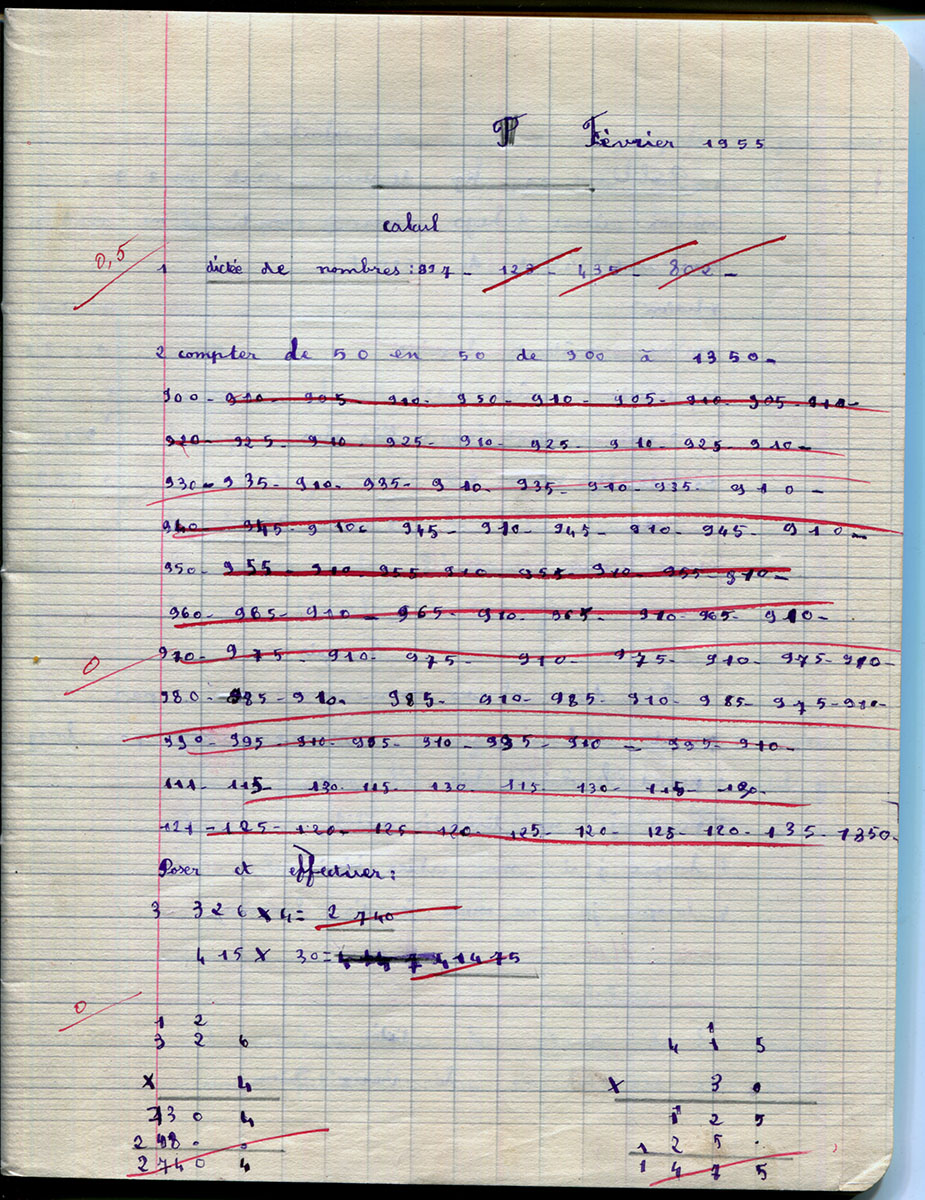 Février 1955
calcul
0,5
1 dictée de nombres : 897 - 123 - 435 - 802 -
2 compter de 50 en 50 de 900 à 1350 -
900 - 910 - 905 - 910 - 950 - 910 - 905 - 910 - 905 - 910 -
920 - 925 - 910 - 925 - 910 - 925 - 910 - 925 - 910 -
930 - 935 - 910 - 935 - 910 - 935 - 910 - 935 - 910 -
940 - 945 - 910 - 945 - 910 - 945 - 910 - 945 - 910 -
950 - 955 - 910 - 955 - 910 - 955 - 910 - 955 - 910 -
960 - 965 - 910 - 965 - 910 - 965 - 910 - 965 - 910 -
0
970 - 975 - 910 - 975 - 910 - 975 - 910 - 975 - 910 -
980 - 985 - 910 - 985 - 910 - 985 - 910 - 985 - 975 - 910 -
990 - 995 - 910 - 995 - 910 - 995 - 910 - 995 - 910 -
111 - 115 - 130 - 115 - 130 - 115 - 130 - 115 - 130 -
121 - 125 - 120 - 125 - 120 - 125 - 120 - 125 - 120 - 135 - 1350 -
Poser et effectuer :
3 326 x 4 = 2 740
415 x 30 = 1475
0
1 2
3 2 6
x 4
3 0 4
2 7 4 0 4
1
4 1 5
x 3 0
1 2 5
1 2 5 .
1 4 7 5